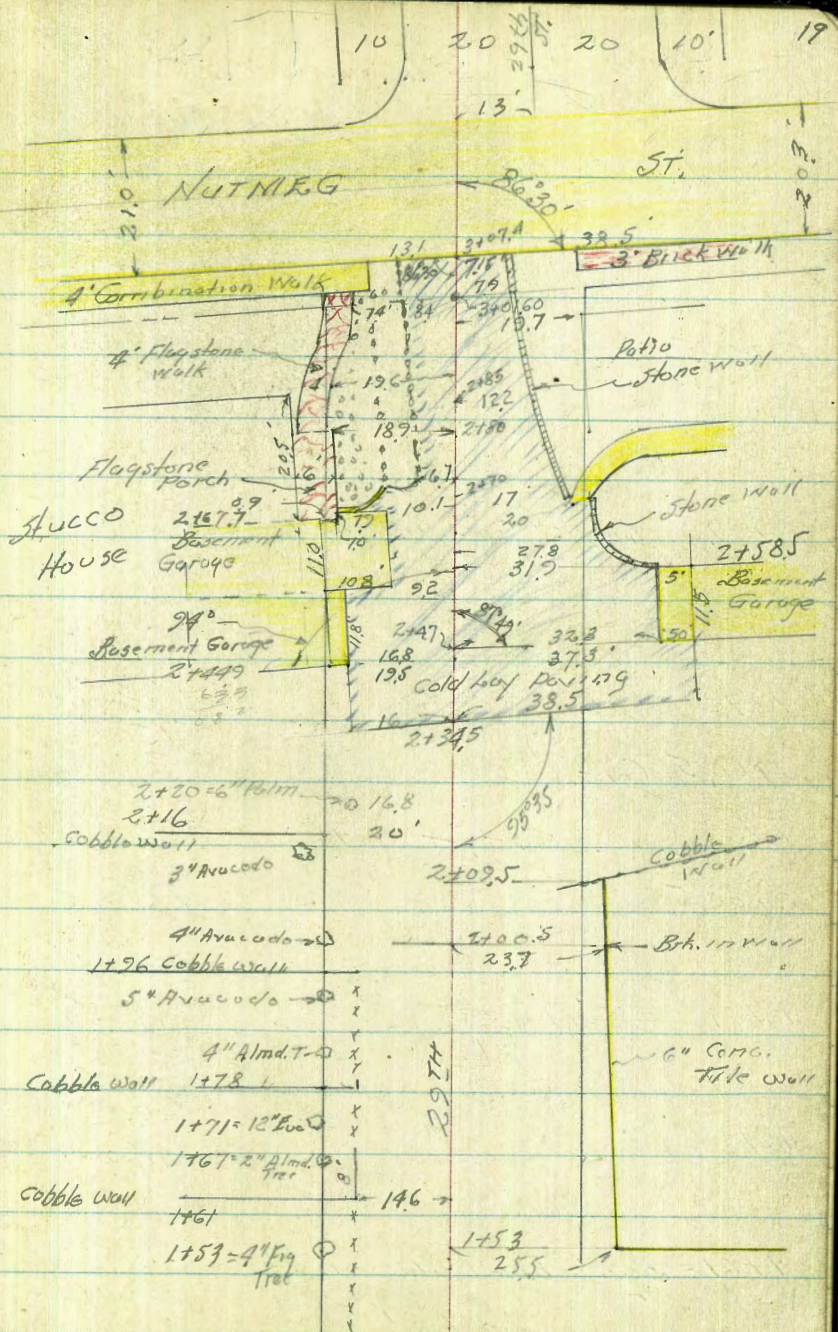 19
10 20 29th St. 20 10'
13'
21.0'
NUTMEG ST.
20.3'
86°30'
13.1 3+07.4 38.5
3' Brick Walk
7.15
4' Combination Walk
79
74 84 3+0.60
15.7
4' Flagstone Walk
Patio
Stone Wall
19.6 2+85
122
18.9 2+80
20.5'
Flagstone Porch
6.7 2+70
10.1 17
20
Stone Wall
Stucco House
0.9
2+67.7
Basement Garage
11.0
7.0
27.8
31.9
2+58.5
10.8 9.2
5'
Basement Garage
11.5
94°
Basement Garage
2+44.9
11.8
87°49'
2+47 32.3
50
16.8 37.3'
19.5
Cold Lay Paving
38.5
16
2+34.5
2+20=6" Palm 16.8
2+16
20'
95°35
Cobble Wall
3" Avacado
2+09.5
Cobble Wall
4" Avacado
2+00.5
23.7
Brk. in Wall
1+96 Cobble Wall
5" Avacado
4" Almd. T.
6" Conc. Tile Wall
Cobble Wall 1+78
29TH
1+71=12" Euc
1+67=2" Almd. Tree
8
Cobble Wall
14.6
1+61
1+53=4" Fig Tree
1+53
25.5